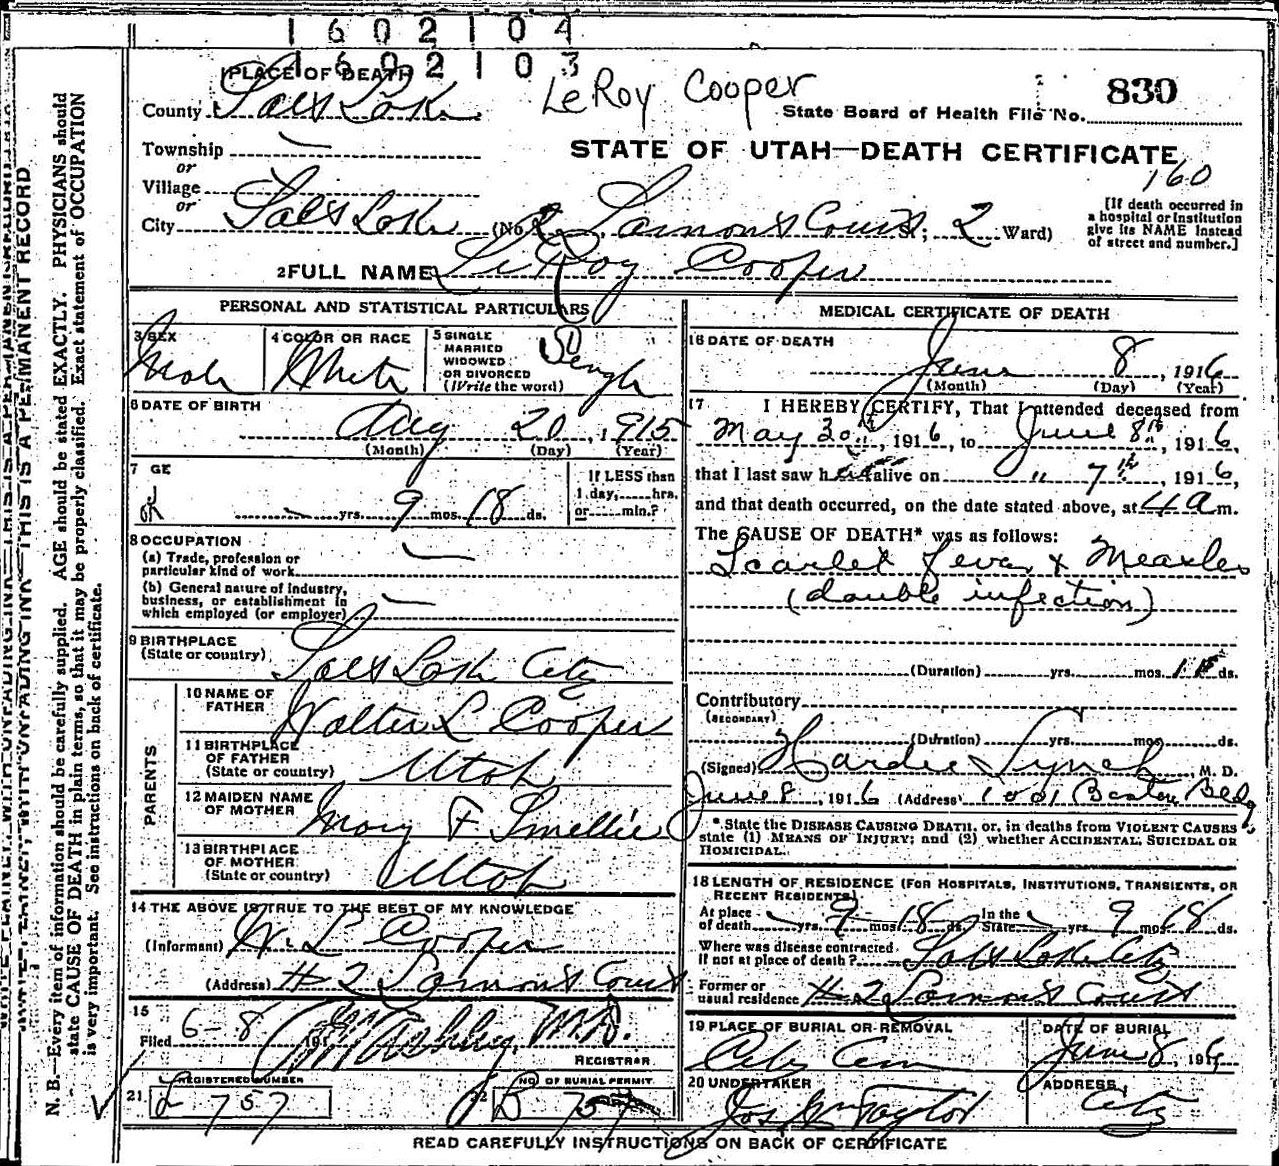 1602104
1602103
PLACE OF DEATH
LeRoy Cooper
830
County Salt Lake
State Board of Health File No.
Township —
STATE OF UTAH—DEATH CERTIFICATE
or
160
Village
or
City Salt Lake (No. 2 St.; 2 Ward)
[If death occurred in
a hospital or institution
give its NAME instead
of street and number.]
2 FULL NAME LeRoy Cooper
PERSONAL AND STATISTICAL PARTICULARS
3 SEX Male
4 COLOR OR RACE White
5 SINGLE
MARRIED
WIDOWED
OR DIVORCED
(Write the word) Single
6 DATE OF BIRTH
Aug 20, 1915
(Month) (Day) (Year)
7 GE
— yrs. 9 mos. 18 ds.
If LESS than
1 day, hrs.
or min.?
8 OCCUPATION
(a) Trade, profession or
particular kind of work —
(b) General nature of industry,
business, or establishment in
which employed (or employer) —
9 BIRTHPLACE
(State or country) Salt Lake City
PARENTS
10 NAME OF
FATHER Walter L Cooper
11 BIRTHPLACE
OF FATHER
(State or country) Utah
12 MAIDEN NAME
OF MOTHER Mary F Smellie
13 BIRTHPLACE
OF MOTHER
(State or country) Utah
14 THE ABOVE IS TRUE TO THE BEST OF MY KNOWLEDGE
(Informant) W. L Cooper
(Address) # 2 Court
15
Filed 6-8 191 M.D.
REGISTRAR
21 REGISTERED NUMBER
757
22 NO. OF BURIAL PERMIT
B 757
MEDICAL CERTIFICATE OF DEATH
16 DATE OF DEATH
June 8, 1916
(Month) (Day) (Year)
17 I HEREBY CERTIFY, That I attended deceased from
May 30th, 1916, to June 8th, 1916,
that I last saw h alive on " 7th, 1916,
and that death occurred, on the date stated above, at 4 a m.
The CAUSE OF DEATH* was as follows:
Scarlet fever & Measles
(double infection)
(Duration) yrs. mos. ds.
Contributory
(SECONDARY)
(Duration) yrs. mos. ds.
(Signed) Hardie Lynch M. D.
June 8, 1916 (Address) 1001 Boston Bldg
*State the DISEASE CAUSING DEATH, or, in deaths from VIOLENT CAUSES
state (1) MEANS OF INJURY; and (2) whether ACCIDENTAL, SUICIDAL OR
HOMICIDAL.
18 LENGTH OF RESIDENCE (FOR HOSPITALS, INSTITUTIONS, TRANSIENTS, OR
RECENT RESIDENTS)
At place
of death — yrs. 9 mos. 18 ds. In the
State — yrs. 9 mos. 18 ds.
Where was disease contracted
if not at place of death? Salt Lake City
Former or
usual residence # 2 Court
19 PLACE OF BURIAL OR REMOVAL
City Cem
DATE OF BURIAL
June 8, 1916
20 UNDERTAKER
Taylor
ADDRESS
City
READ CAREFULLY INSTRUCTIONS ON BACK OF CERTIFICATE
THIS IS A PERMANENT RECORD
N. B.—Every item of information should be carefully supplied. AGE should be stated EXACTLY. PHYSICIANS should
state CAUSE OF DEATH in plain terms, so that it may be properly classified. Exact statement of OCCUPATION
is very important. See instructions on back of certificate.